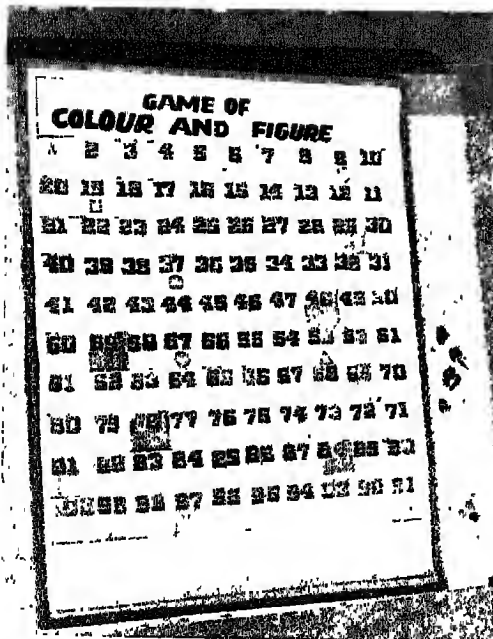 GAME OF
COLOUR AND FIGURE
1 2 3 4 5 6 7 8 9 10
20 19 18 17 16 15 14 13 12 11
21 22 23 24 25 26 27 28 29 30
40 39 38 37 36 35 34 33 32 31
41 42 43 44 45 46 47 48 49 50
60 59 58 57 56 55 54 53 52 51
61 62 63 64 65 66 67 68 69 70
80 79 78 77 76 75 74 73 72 71
81 82 83 84 85 86 87 88 89 90
100 99 98 97 96 95 94 93 92 91